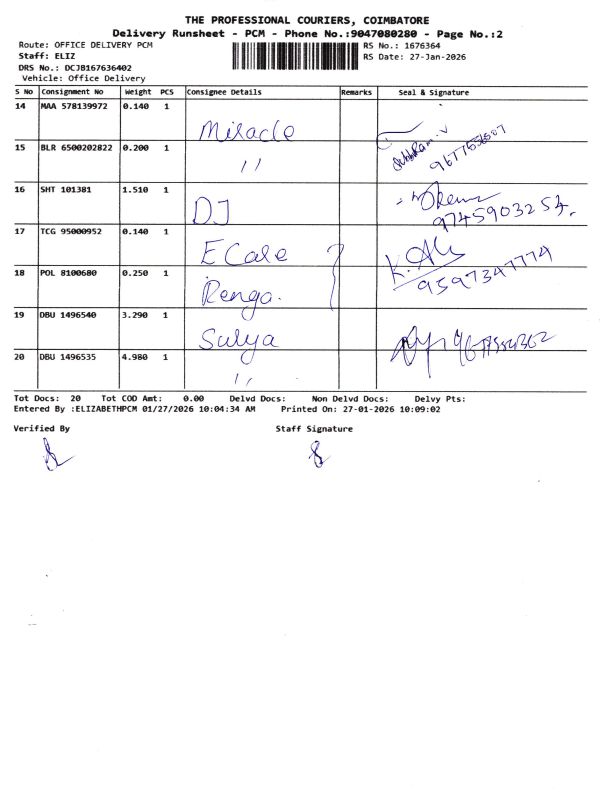 THE PROFESSIONAL COURIERS, COIMBATORE
Delivery Runsheet - PCM - Phone No.:9047080280 - Page No.:2
Route: OFFICE DELIVERY PCM
Staff: ELIZ
DRS No.: DCJB167636402
Vehicle: Office Delivery
RS No.: 1676364
RS Date: 27-Jan-2026
S No Consignment No Weight PCS Consignee Details Remarks Seal & Signature
14 MAA 578139972 0.140 1 Miracle
15 BLR 6500202822 0.200 1 ''
16 SHT 101381 1.510 1 DJ 9745903254.
17 TCG 95000952 0.140 1 E Care K.
18 POL 8100680 0.250 1 Renga. 9597347774
19 DBU 1496540 3.290 1 Surya
20 DBU 1496535 4.980 1 ''
Tot Docs: 20 Tot COD Amt: 0.00 Delvd Docs: Non Delvd Docs: Delvy Pts:
Entered By :ELIZABETHPCM 01/27/2026 10:04:34 AM Printed On: 27-01-2026 10:09:02
Verified By Staff Signature